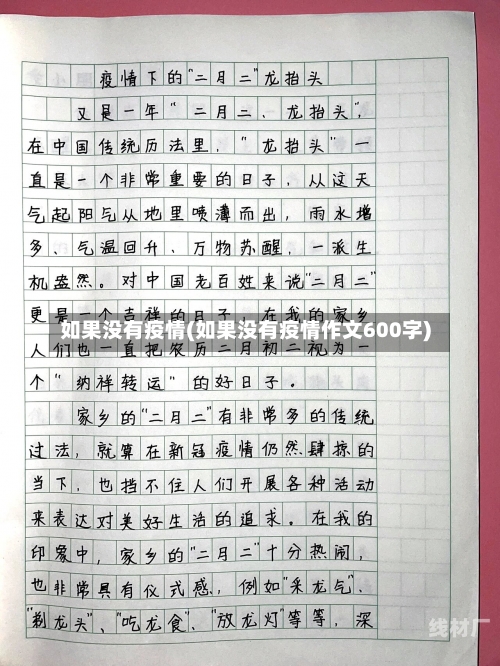 疫情下的"二月二"龙抬头
又是一年"二月二、龙抬头",
在中国传统历法里,"龙抬头"一
直是一个非常重要的日子,从这天
气起阳气从地里喷薄而出,雨水增
多、气温回升、万物苏醒,一派生
机盎然。对中国老百姓来说"二月二"
更是一个吉祥的日子,在我的家乡
如果没有疫情(如果没有疫情作文600字)
人们也一直把农历二月初二视为一
个"纳祥转运"的好日子。
家乡的"二月二"有非常多的传统
过法,就算在新冠疫情仍然肆掠的
当下,也挡不住人们开展各种活动
来表达对美好生活的追求。在我的
印象中,家乡的"二月二"十分热闹,
也非常具有仪式感,例如"采龙气"、
"剃龙头"、"吃龙食"、"放龙灯"等等,深
线材厂